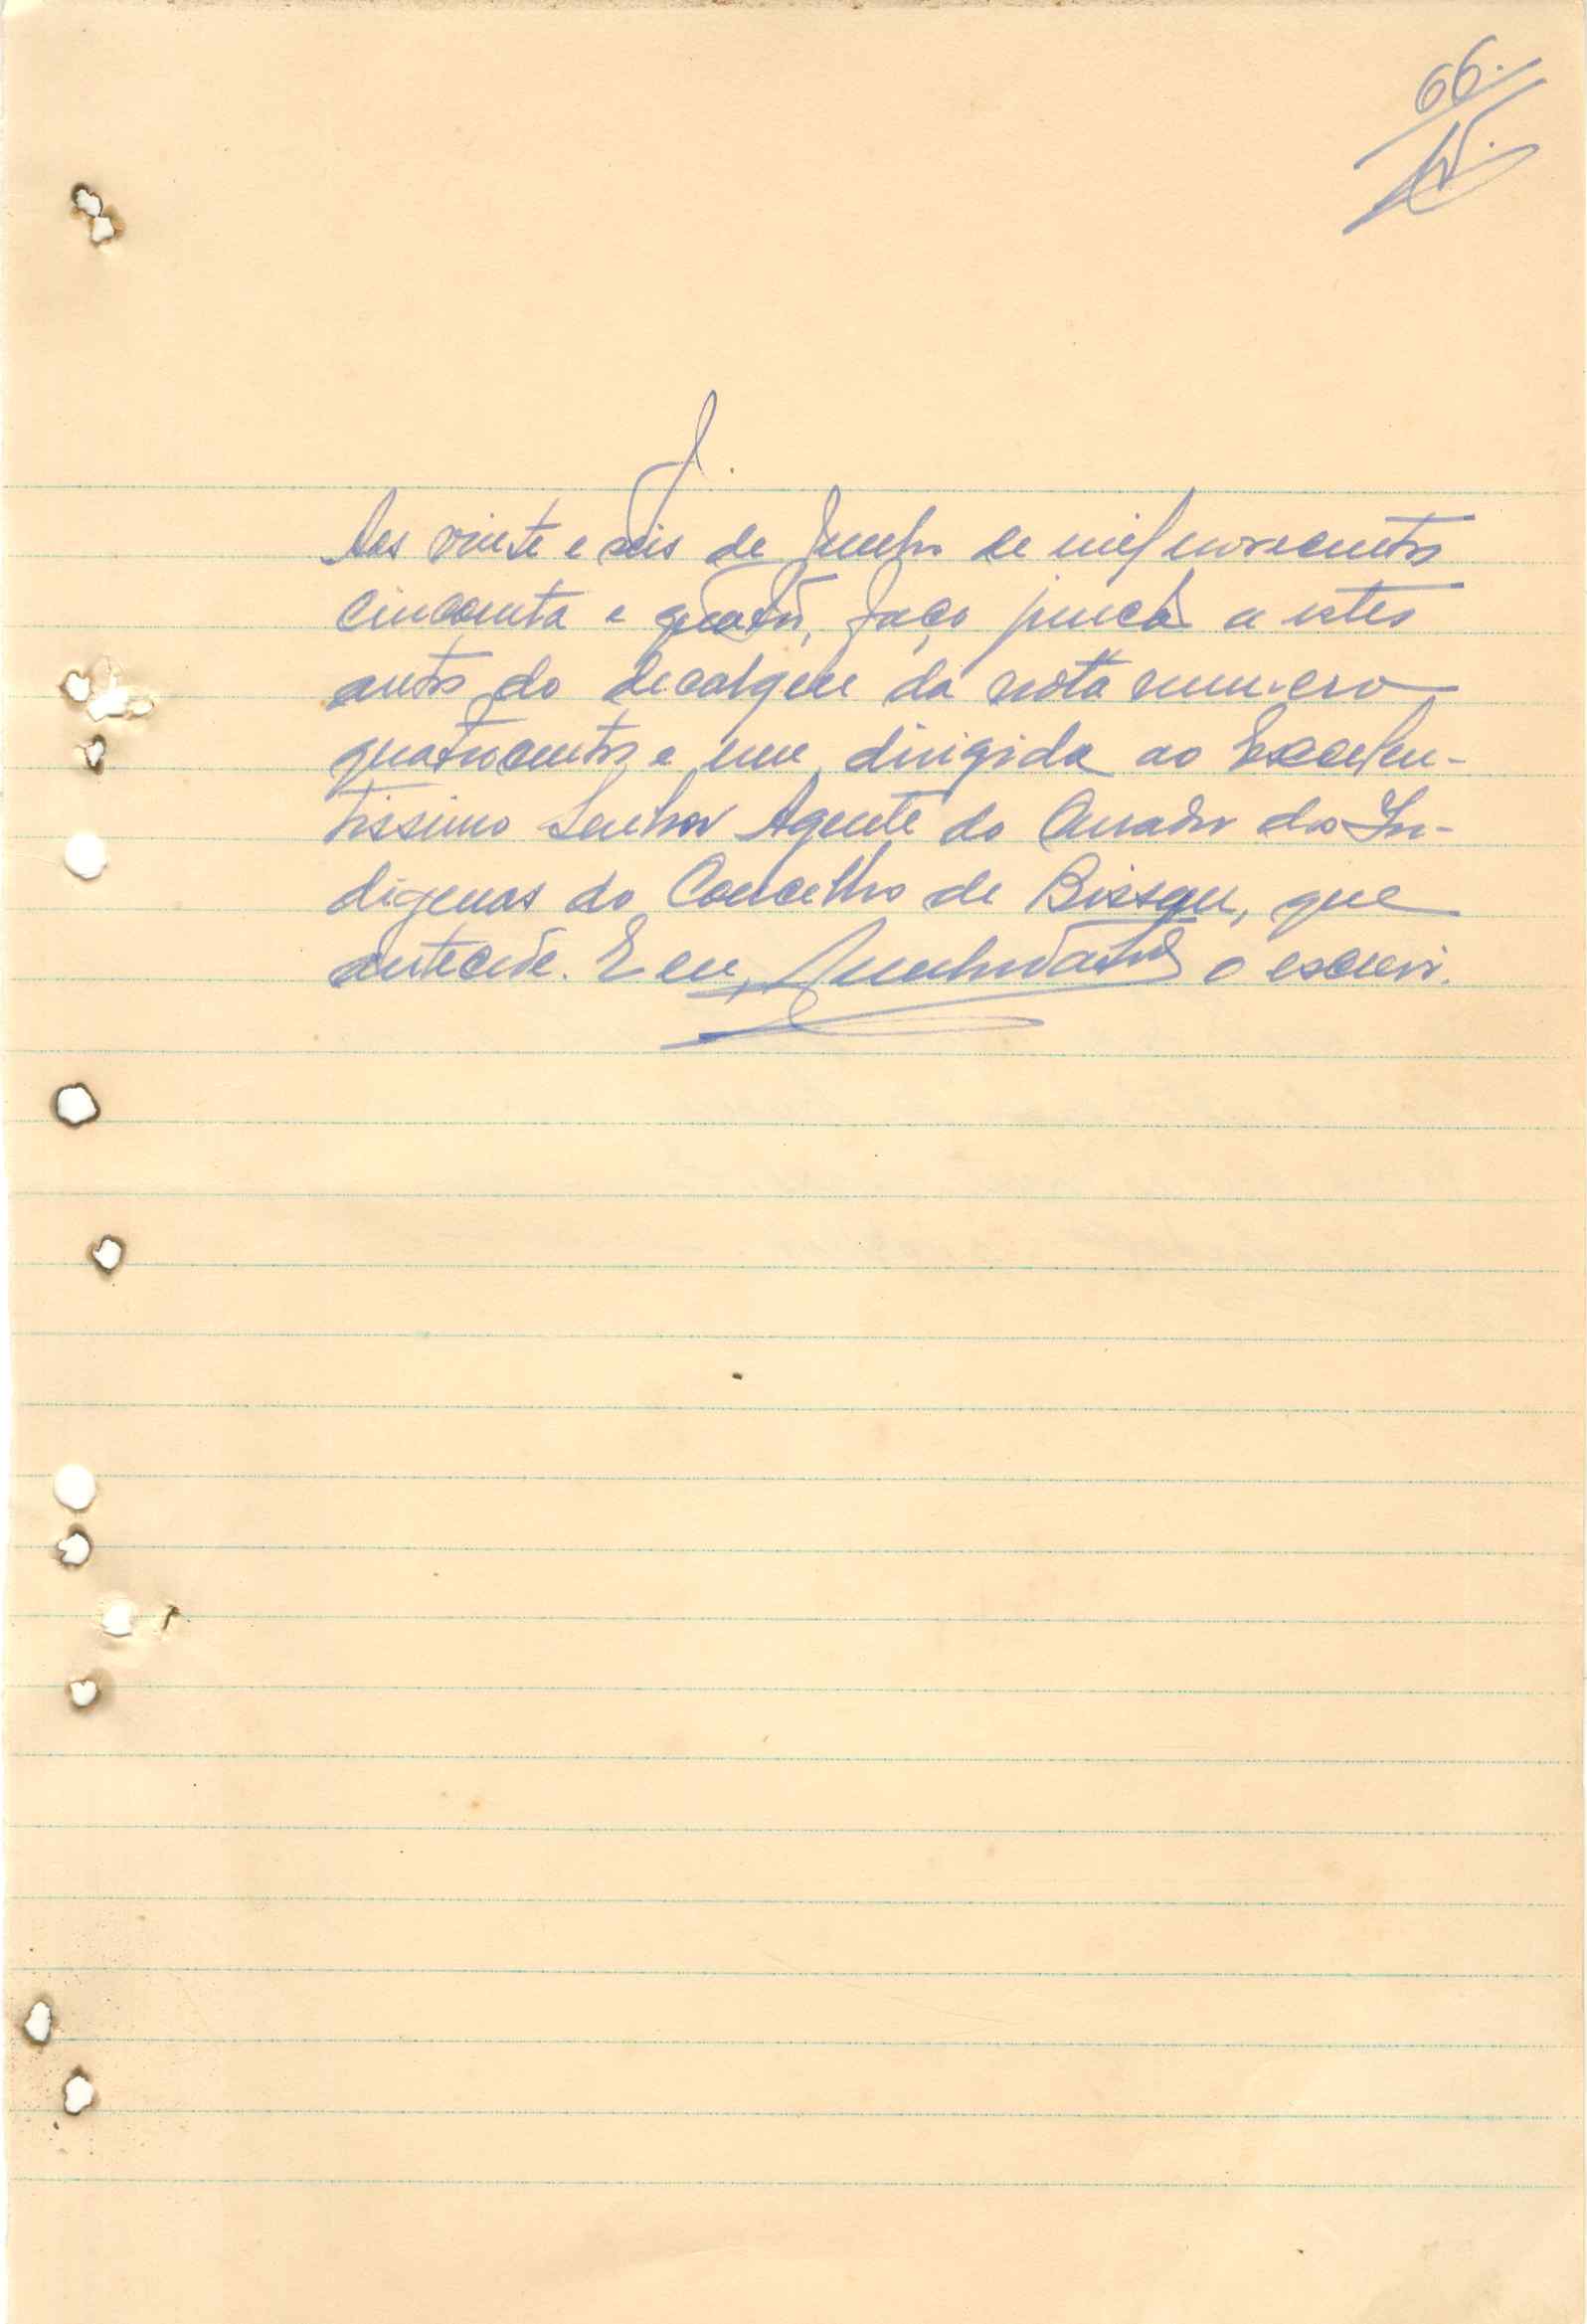 66.
J.
Aos vinte e seis de Junho de mil novecentos
cincoenta e quatro, faço junção a estes
autos do decalque da nota numero
quatrocentos e um, dirigida ao Excelen-
tissimo Senhor Agente do Curador dos In-
digenas do Concelho de Bissau, que
antecede. E eu, o escrevi.